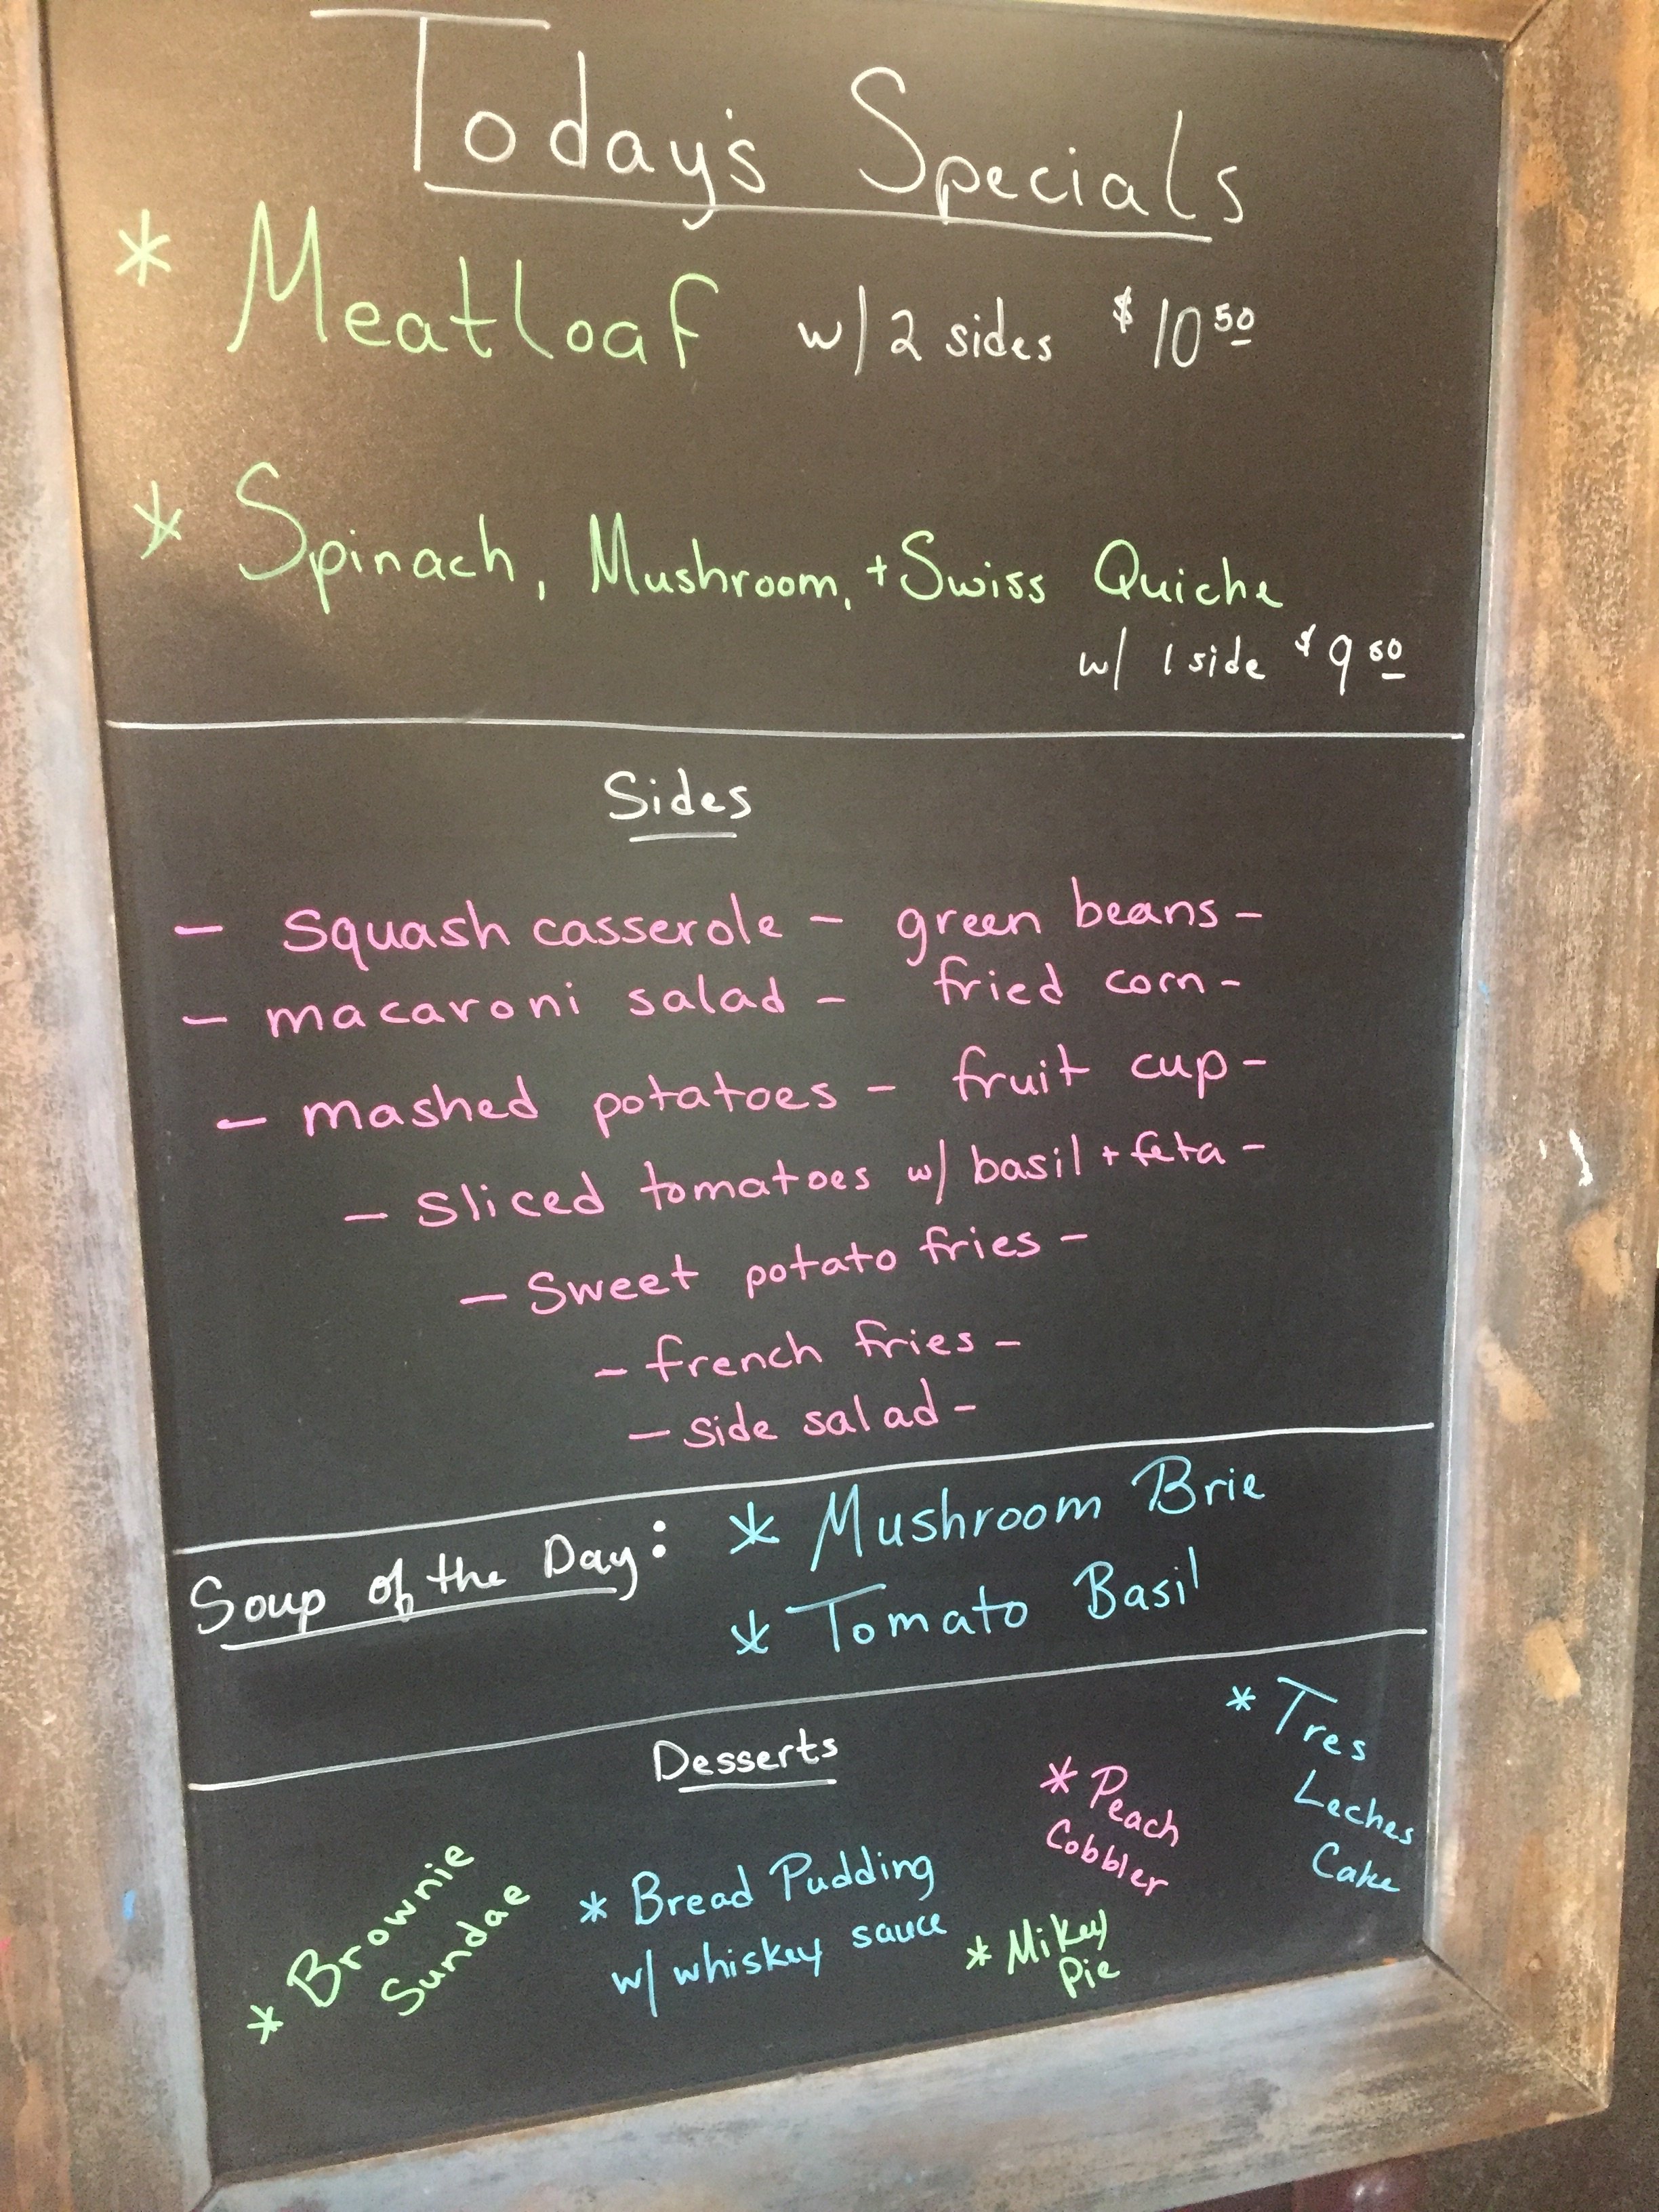 Today's Specials
* Meatloaf w/ 2 sides $10 50
* Spinach, Mushroom, + Swiss Quiche
w/ 1 side $9
Sides
- squash casserole - green beans -
- macaroni salad - fried corn -
- mashed potatoes - fruit cup -
- sliced tomatoes w/ basil + feta -
- sweet potato fries -
- french fries -
- side salad -
Soup of the Day: * Mushroom Brie
* Tomato Basil
Desserts
* Brownie
Sundae
* Bread Pudding
w/ whiskey sauce
* Mikey
Pie
* Peach
Cobbler
* Tres
Leches
Cake